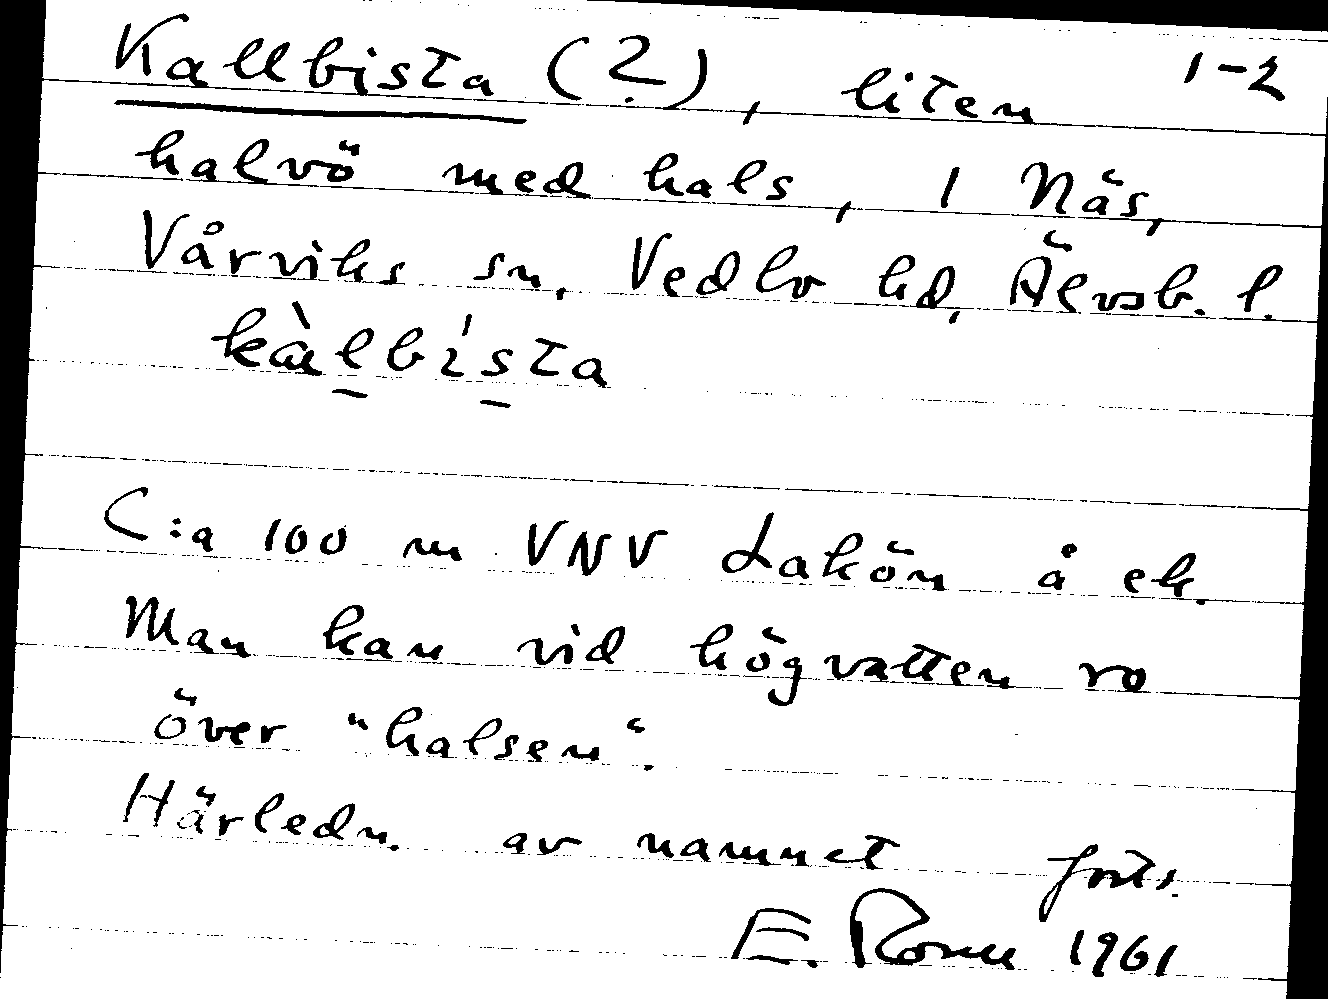 Kallbista (?), liten 1-2
halvö med hals, 1 Näs,
Vårviks sn, Vedbo hd, Älvsb. l.
kàlbísta
C:a 100 m VNV Lakön å ek.
Man kan vid högvatten ro
över "halsen".
Härledn. av namnet forts.
E. 1961